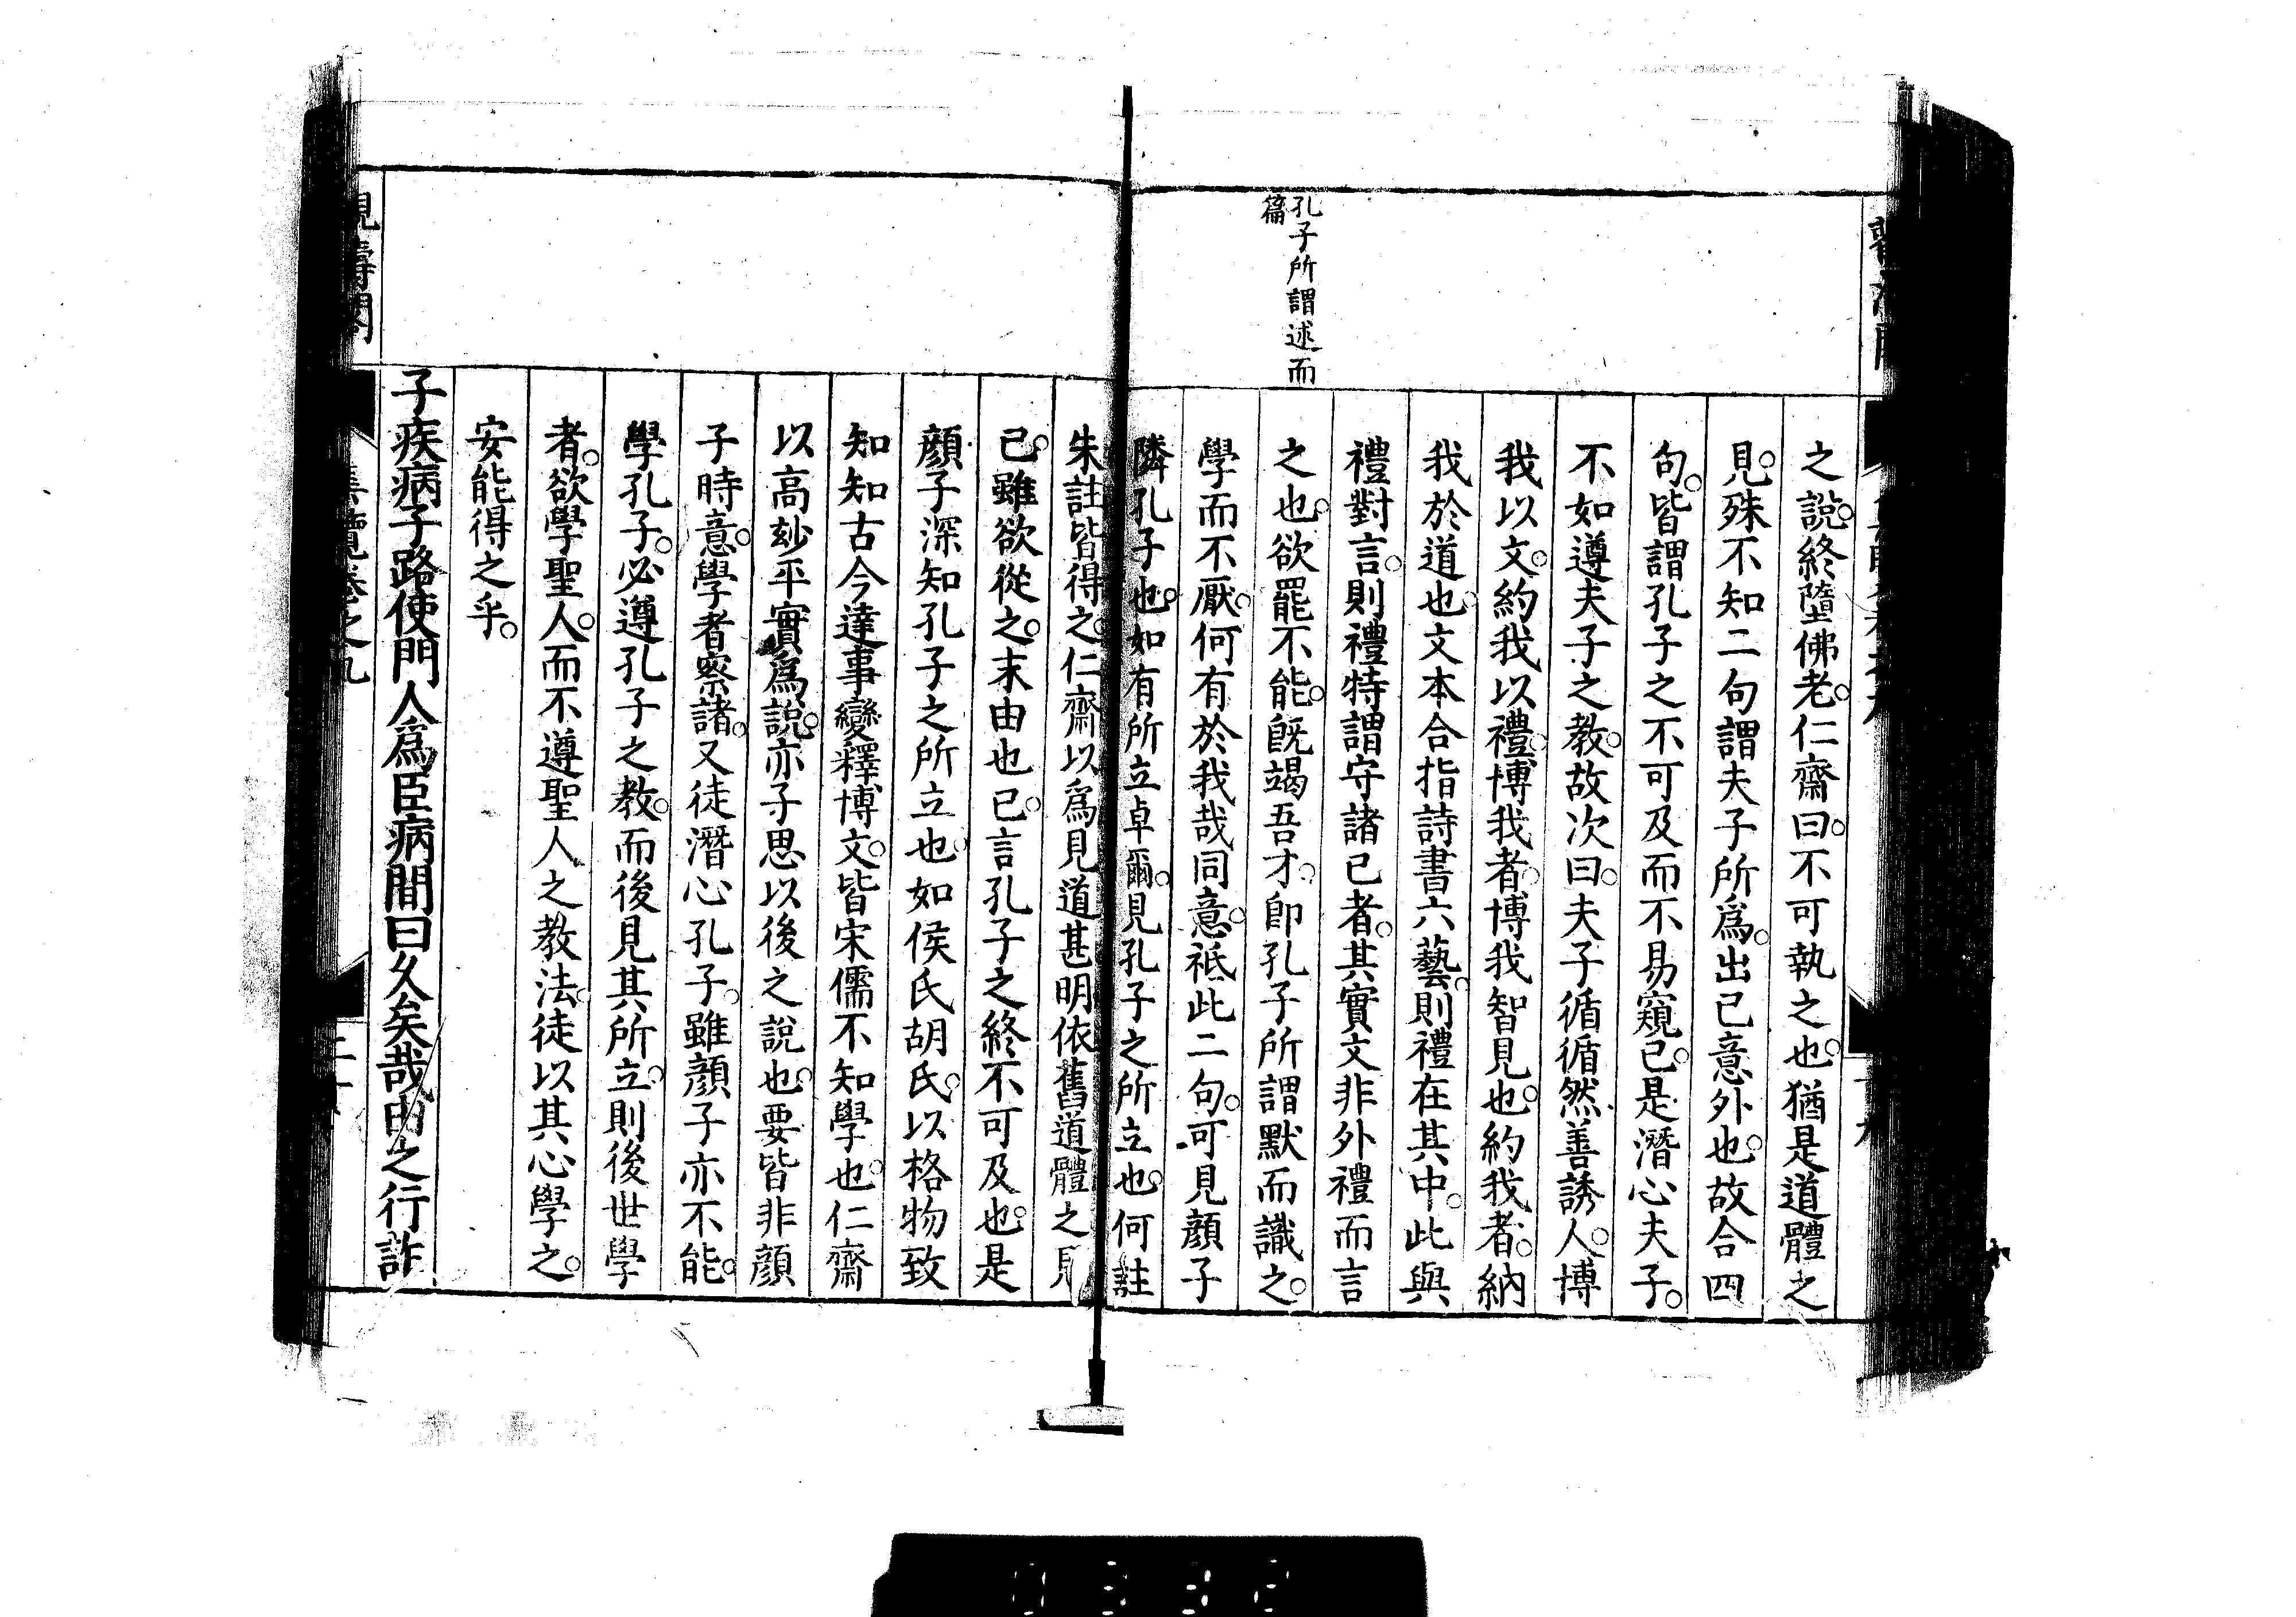 孔子所謂述而
篇
之說。終墮佛老。仁齋曰。不可執之也。猶是道體之
見。殊不知二句謂夫子所爲。出己意外也。故合四
句。皆謂孔子之不可及而不易窺已。是潛心夫子。
不如遵夫子之教。故次曰。夫子循循然善誘人。博
我以文。約我以禮。博我者。博我智見也。約我者。納
我於道也。文本合指詩書六藝。則禮在其中。此與
禮對言。則禮特謂守諸己者。其實文非外禮而言
之也。欲罷不能。既竭吾才。卽孔子所謂默而識之。
學而不厭。何有於我哉同意。祗此二句。可見顏子
隣孔子也。如有所立卓爾。見孔子之所立也。何註
朱註皆得之。仁齋以爲見道甚明。依舊道體之見
已。雖欲從之。末由也已。言孔子之終不可及也。是
顏子深知孔子之所立也。如侯氏胡氏。以格物致
知知古今達事變釋博文。皆宋儒不知學也。仁齋
以高玅平實爲說。亦子思以後之說也。要皆非顏
子時意。學者察諸。又徒潛心孔子。雖顏子亦不能。
學孔子。必遵孔子之教。而後見其所立。則後世學
者。欲學聖人。而不遵聖人之教法。徒以其心學之。
安能得之乎。
子疾病子路使門人爲臣病間曰久矣哉由之行詐
覽卷之九